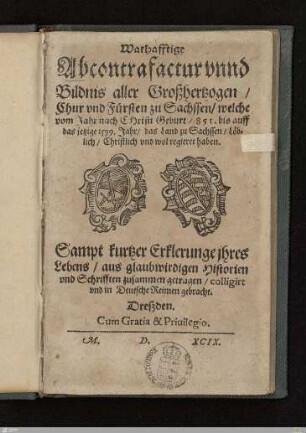 Warhafftige
Abcontrafactur vnnd
Bildnis aller Großhertzogen /
Chur vnd Fürsten zu Sachssen / welche
vom Jahr nach Christi Geburt / 851. bis auff
das jetzige 1599. Jahr / das Land zu Sachssen / löb-
lich / Christlich vnd wol regieret haben.
Sampt kurtzer Erklerunge jhres
Lebens / aus glaubwirdigen Historien
vnd Schrifften zusammen getragen / colligirt
vnd in Deutsche Reimen gebracht.
Dreßden.
Cum Gratia & Priuilegio.
M. D. XCIX.